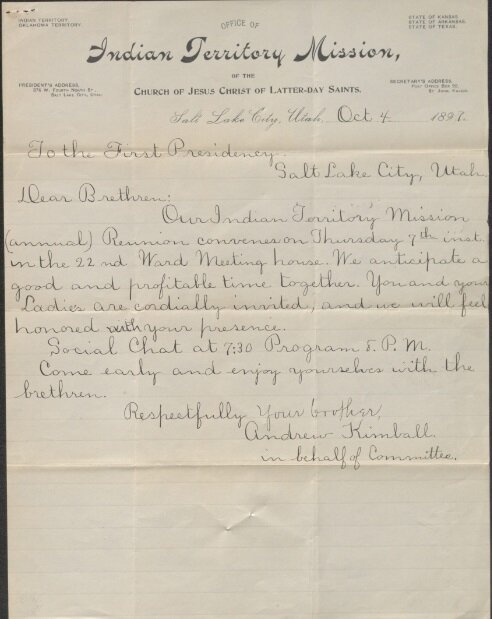 INDIAN TERRITORY.
OKLAHOMA TERRITORY.
STATE OF KANSAS.
STATE OF ARKANSAS.
STATE OF TEXAS.
OFFICE OF
Indian Territory Mission,
OF THE
CHURCH OF JESUS CHRIST OF LATTER-DAY SAINTS.
PRESIDENT'S ADDRESS,
376 W. FOURTH NORTH ST.,
SALT LAKE CITY, UTAH.
SECRETARY'S ADDRESS,
POST OFFICE BOX 92,
ST. JOHN, KANSAS.
Salt Lake City, Utah, Oct 4 1897.
To the First Presidency.
Salt Lake City, Utah.
Dear Brethren:
Our Indian Territory Mission
(annual) Reunion convenes on Thursday 7th inst.
in the 22nd Ward Meeting house. We anticipate a
good and profitable time together. You and your
Ladies are cordially invited, and we will feel
honored with your presence.
Social Chat at 7:30 Program 8. P.M.
Come early and enjoy yourselves with the
brethren.
Respectfully Your brother,
Andrew Kimball.
in behalf of Committee.